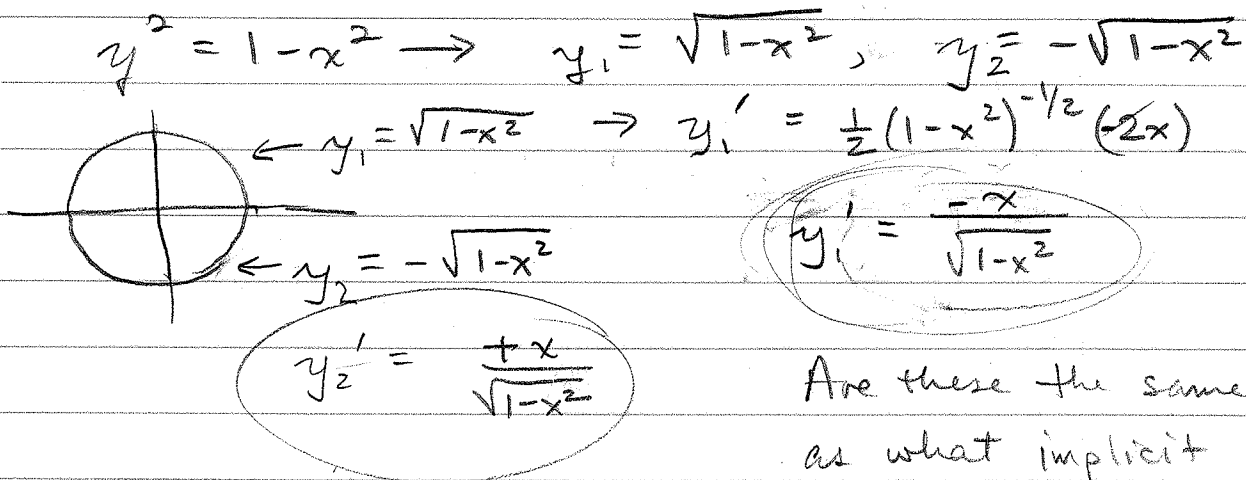 y² = 1 - x² → y₁ = √(1-x²) , y₂ = -√(1-x²)
← y₁ = √(1-x²) → y₁' = ½(1-x²)^(-1/2) (-2x)
y₁' = -x/√(1-x²)
← y₂ = -√(1-x²)
y₂' = +x/√(1-x²)
Are these the same
as what implicit